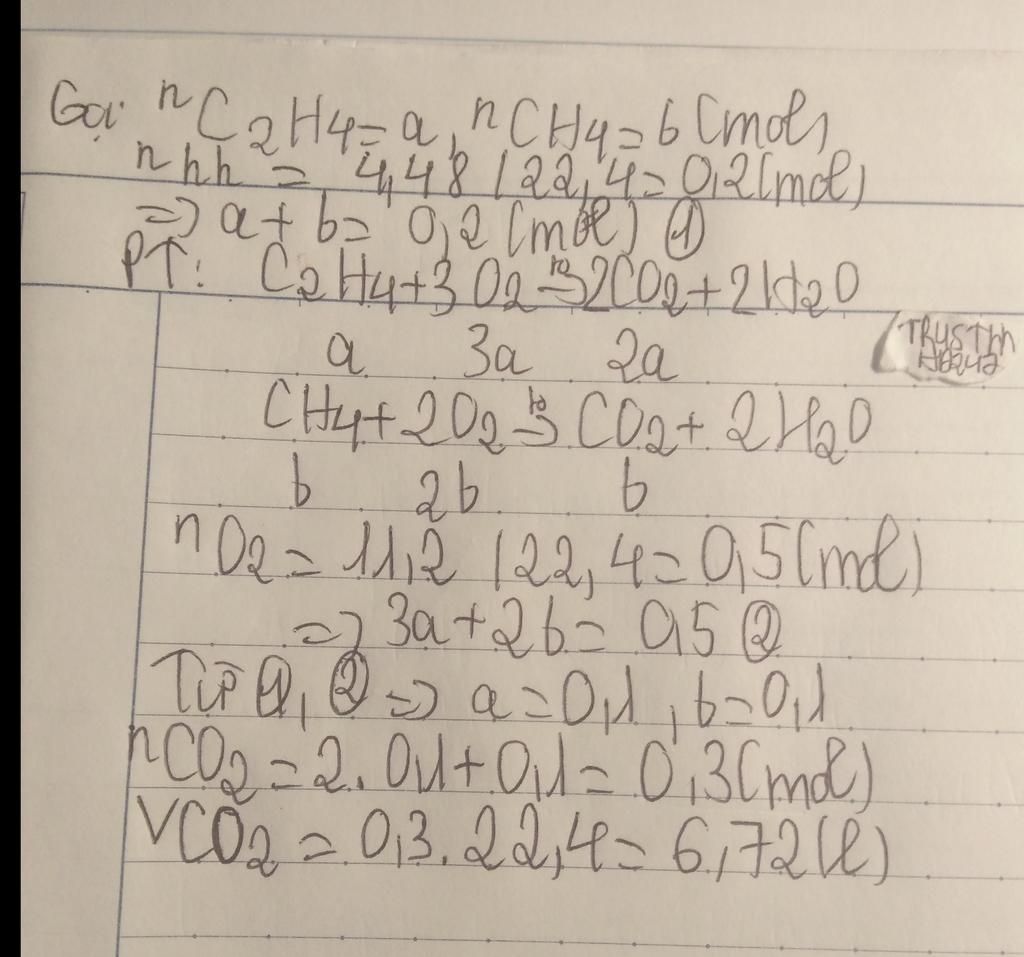 Gọi nC2H4=a, nCH4=b(mol)
nhh = 4,48/22,4=0,2(mol)
=> a+b= 0,2(mol) ①
PT: C2H4+3O2 -t°-> 2CO2+2H2O
a 3a 2a
TRUSThh
CH4+2O2 -t°-> CO2+2H2O
b 2b b
nO2= 11,2/22,4=0,5(mol)
=> 3a+2b= 0,5 ②
Từ ①,② => a=0,1, b=0,1
nCO2=2.0,1+0,1=0,3(mol)
VCO2=0,3.22,4=6,72(l)